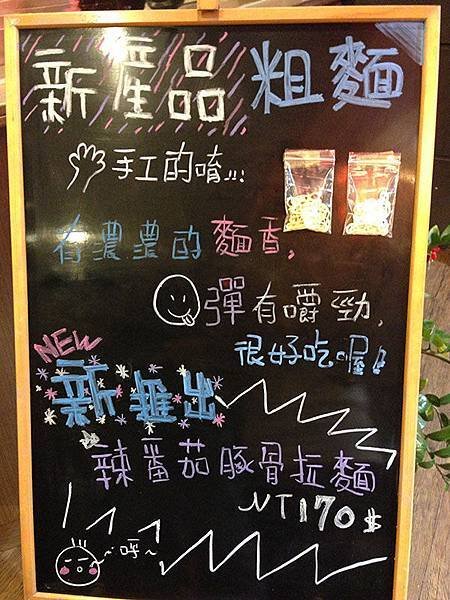 新產品 粗麵
手工的唷...
有濃濃的麵香,
彈有嚼勁,
很好吃喔!
NEW
新推出
辣番茄豚骨拉麵
NT170$
~呼~